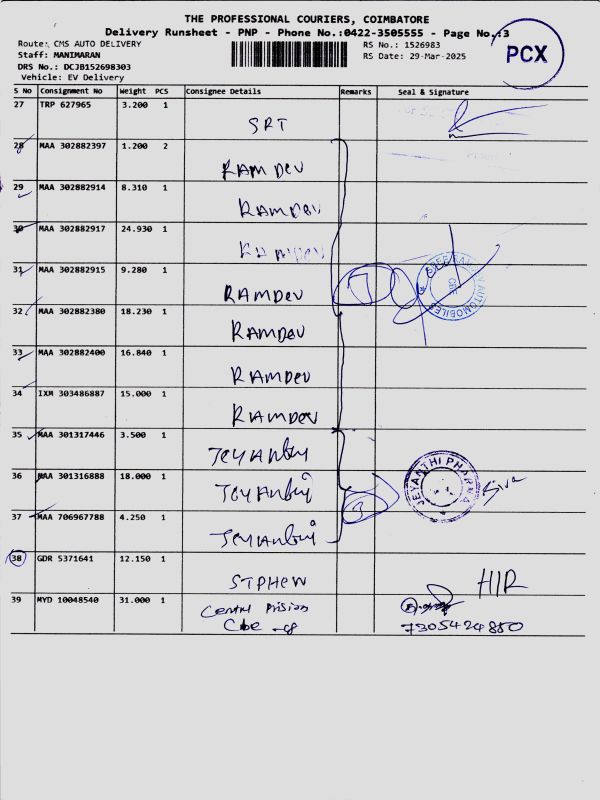 THE PROFESSIONAL COURIERS, COIMBATORE
Delivery Runsheet - PNP - Phone No.:0422-3505555 - Page No.:3
Route: CMS AUTO DELIVERY
RS No.: 1526983
Staff: MANIMARAN
RS Date: 29-Mar-2025
DRS No.: DCJB152698303
Vehicle: EV Delivery
PCX
S No Consignment No Weight PCS Consignee Details Remarks Seal & Signature
27 TRP 627965 3.200 1
SRT
28 MAA 302882397 1.200 2
RAMDEV
29 MAA 302882914 8.310 1
RAMDEV
30 MAA 302882917 24.930 1
RAMDEV
31 MAA 302882915 9.280 1
RAMDEV
7
AUTOMOBILE
CBE
32 MAA 302882380 18.230 1
RAMDEV
33 MAA 302882400 16.840 1
RAMDEV
34 IXM 303486887 15.000 1
RAMDEV
35 MAA 301317446 3.500 1
36 MAA 301316888 18.000 1
3
JEYANTHI PHARMA
Siva
37 MAA 706967788 4.250 1
38 GDR 5371641 12.150 1
STPHEN
HIR
39 MYD 10048540 31.000 1
Central Prision
Cbe -18
7305424850